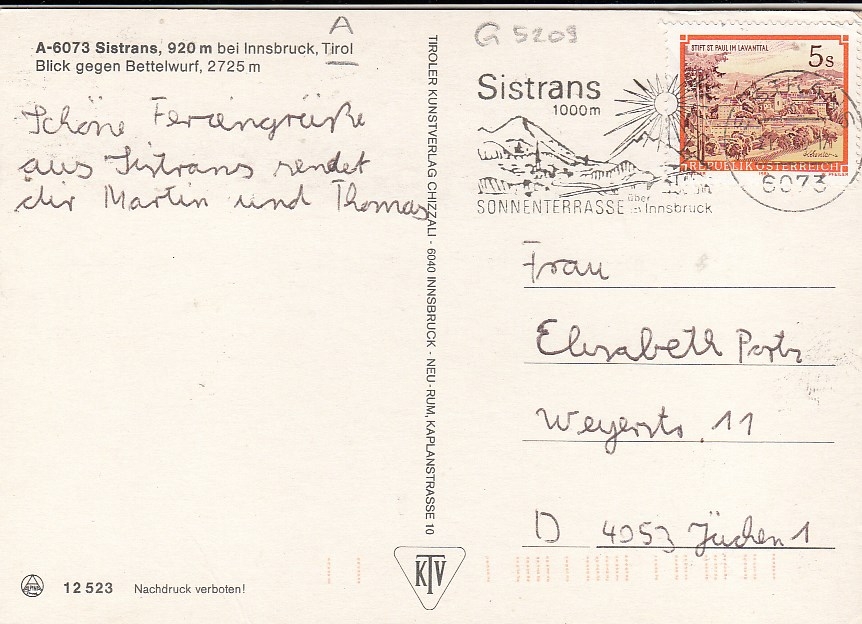 A
A-6073 Sistrans, 920 m bei Innsbruck, Tirol
Blick gegen Bettelwurf, 2725 m
Schöne Feriengrüße
aus Sistrans sendet
dir Martin und Thomas
TIROLER KUNSTVERLAG CHIZZALI - 6040 INNSBRUCK - NEU-RUM, KAPLANSTRASSE 10
G 5209
Sistrans
1000m
SONNENTERRASSE über Innsbruck
STIFT ST. PAUL IM LAVANTTAL
5s
REPUBLIK ÖSTERREICH
6073
Frau
Elisabeth Portz
Weyerstr. 11
D 4053 Jüchen 1
KTV
12 523 Nachdruck verboten!